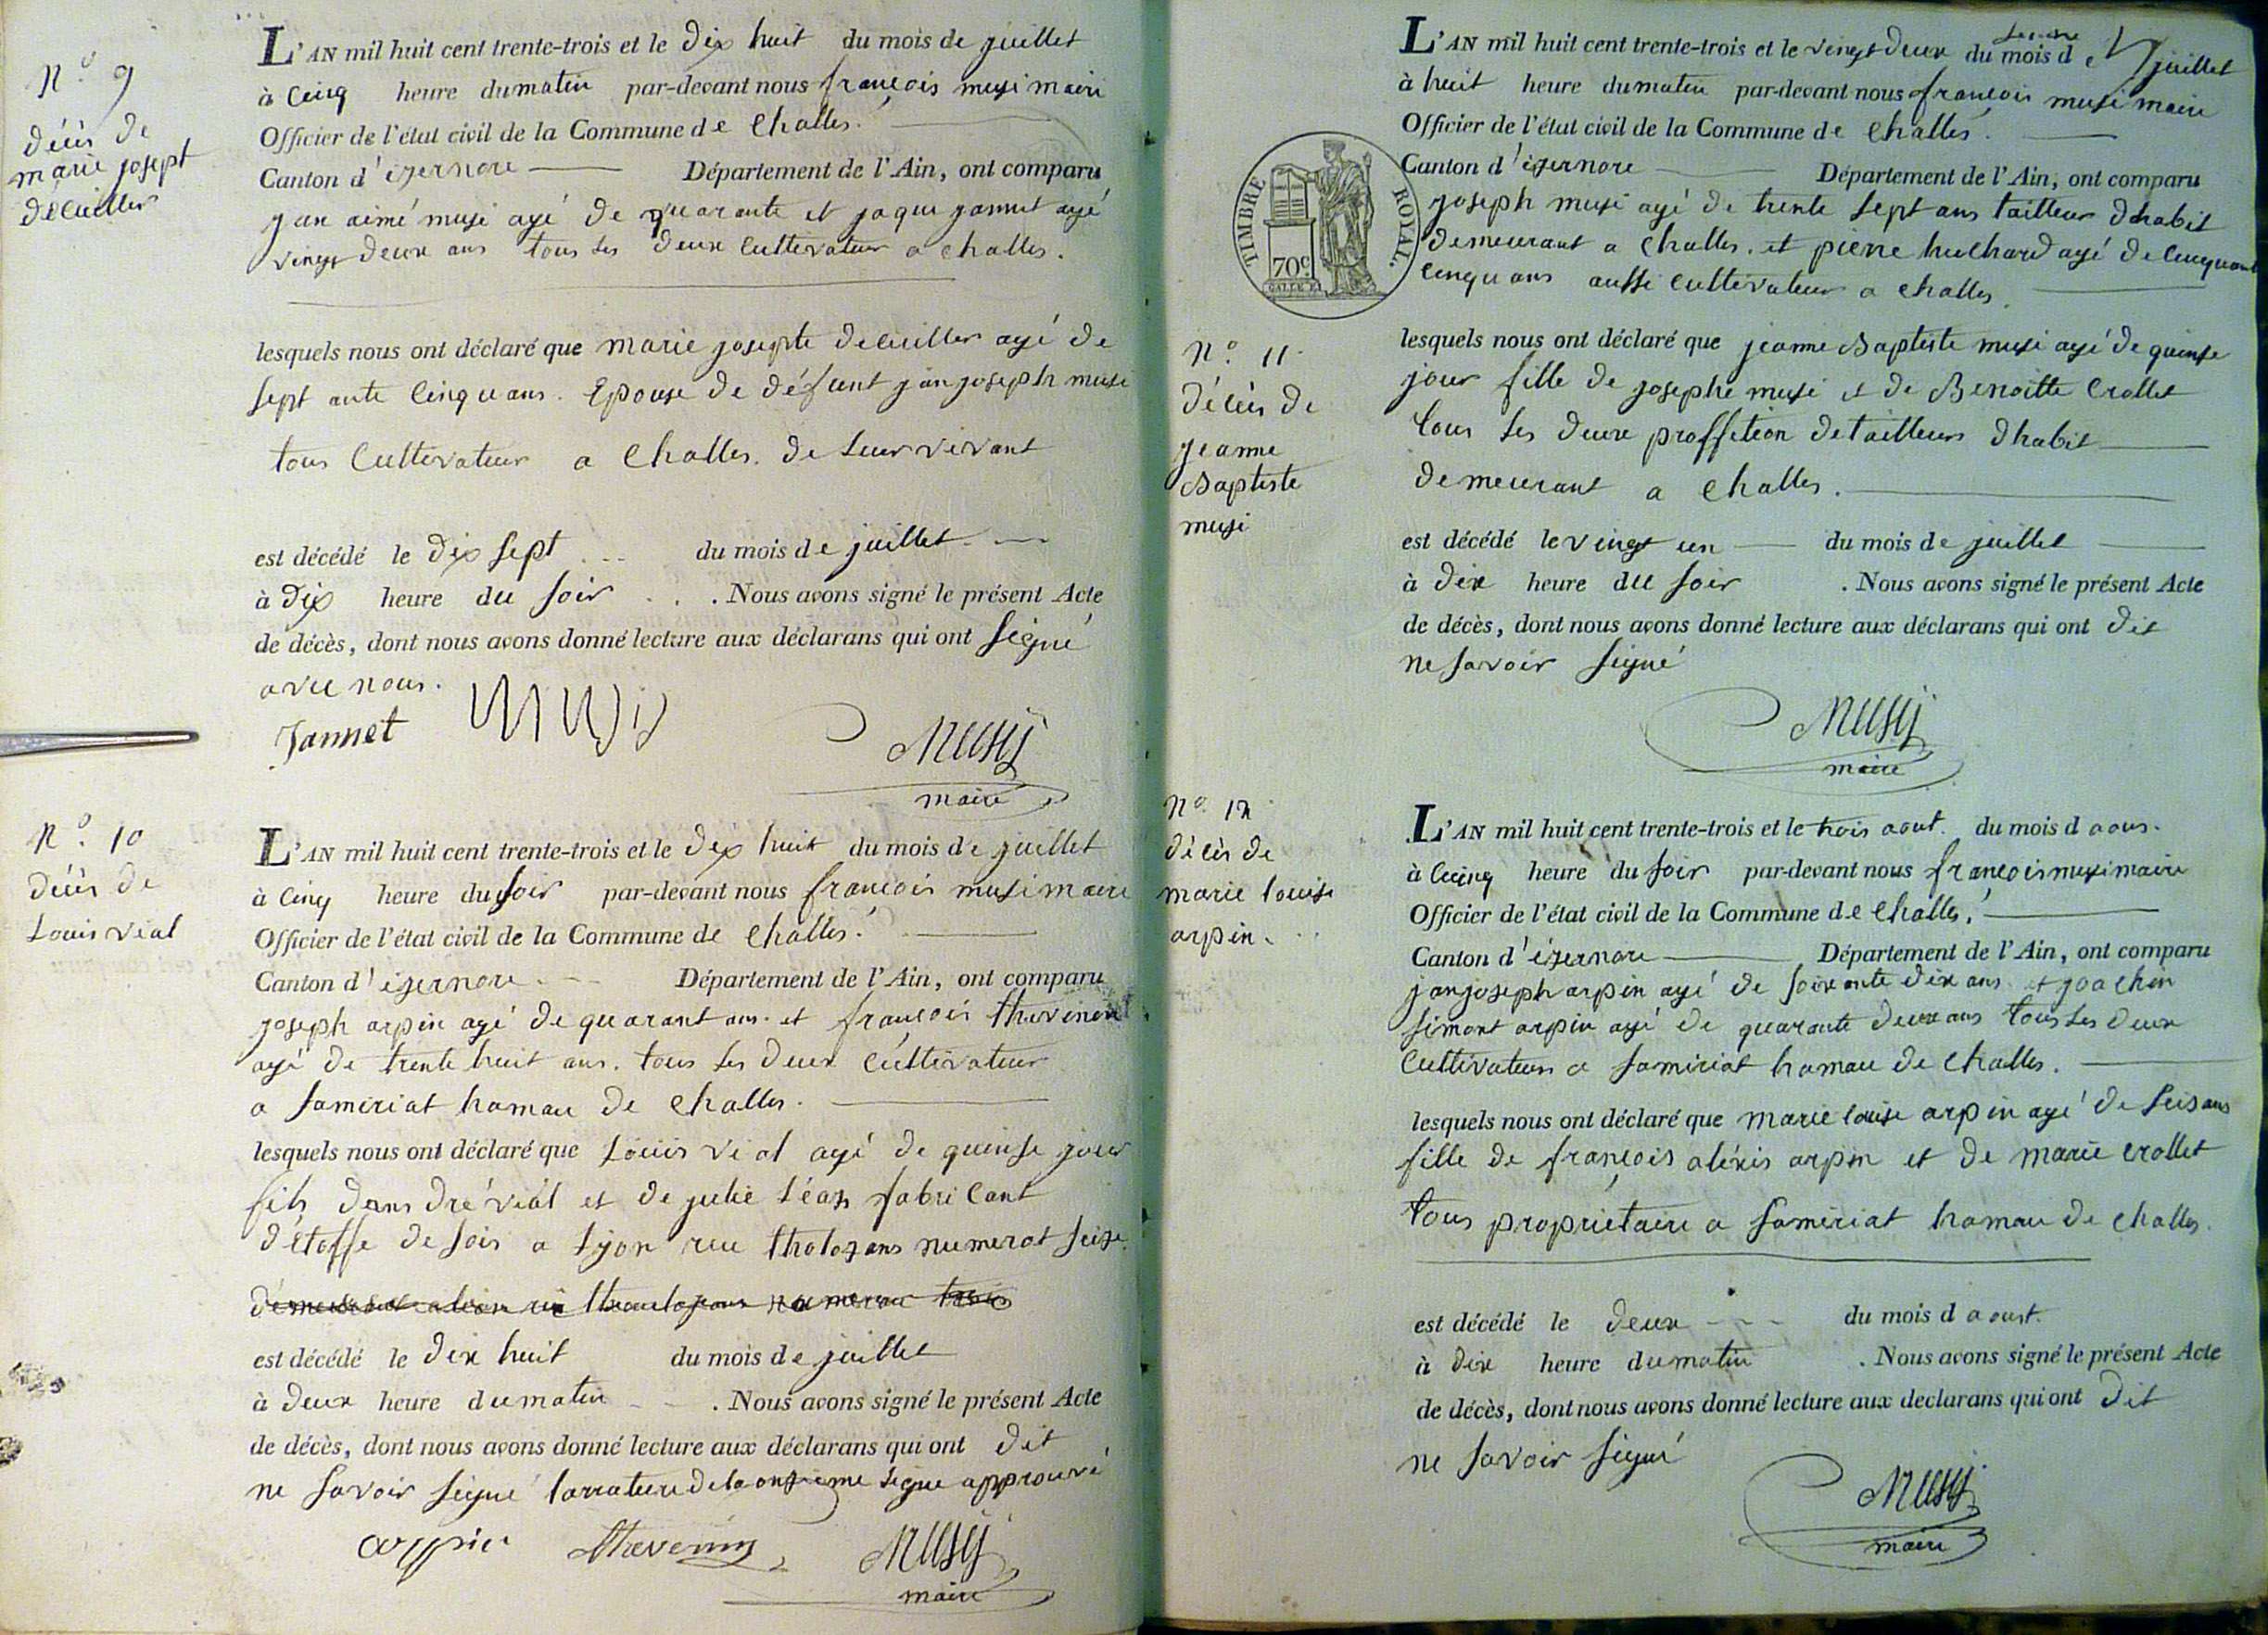 N.o 9
décès de
marie josept
decuiller
L'AN mil huit cent trente-trois et le dix huit du mois de juillet
à cinq heure du matin par-devant nous françois musi maire
Officier de l'état civil de la Commune de Challes.
Canton d'izernore Département de l'Ain, ont comparu
jan aimé musi agé de quarante et jaque jannet agé
vingt deux ans tous les deux cultivateur a challes.
lesquels nous ont déclaré que marie josepte decuiller agé de
sept ante cinqu ans. Epouse de défunt jan joseph musi
tous Cultivateur a Challes. de leur vivant
est décédé le dix sept du mois de juillet
à dix heure du soir . Nous avons signé le présent Acte
de décès, dont nous avons donné lecture aux déclarans qui ont signé
avec nous.
Jannet Musy Musy
maire
N.o 10
décès de
Louis vial
L'AN mil huit cent trente-trois et le dix huit du mois de juillet
à cinq heure du soir par-devant nous françois musi maire
Officier de l'état civil de la Commune de Challes.
Canton d'izernore. Département de l'Ain, ont comparu
joseph arpin agé de quarant ans. et françois thevenin
agé de trente huit ans. tous les deux cultivateur
a samiriat hamau de challes.
lesquels nous ont déclaré que Louis vial agé de quinse jour
fils dandré vial et de julie léas fabricant
d'étoffe de sois a lyon rue tholozans numerot seize
est décédé le dix huit du mois de juillet
à deux heure du matin . Nous avons signé le présent Acte
de décès, dont nous avons donné lecture aux déclarans qui ont dit
ne savoir signé larrature de la onzieme ligne approuvé
arppin thevenin Musy
maire
L'AN mil huit cent trente-trois et le vingt deux du mois de juillet
à huit heure du matin par-devant nous françois musi maire
Officier de l'état civil de la Commune de Challes.
TIMBRE ROYAL.
70c
Canton d'izernore Département de l'Ain, ont comparu
joseph musi agé de trente sept ans tailleur dhabit
demeurant a challes. et pierre huchard agé de cinquant
cinqu ans aussi cultivateur a challes.
N.o 11
décès de
jeanne
Baptiste
musi
lesquels nous ont déclaré que jeanne Baptiste musi agé de quinse
jour fille de josephe musi et de Benoitte Crollet
tous les deux proffition de tailleur dhabit
demeurant a challes.
est décédé le vingt un du mois de juillet
à dix heure du soir . Nous avons signé le présent Acte
de décès, dont nous avons donné lecture aux déclarans qui ont dit
ne savoir signé
Musy
maire
N.o 12
décès de
marie louise
arpin.
L'AN mil huit cent trente-trois et le trois aout. du mois d aous.
à cuinq heure du soir par-devant nous françois musi maire
Officier de l'état civil de la Commune de Challes.
Canton d'izernore Département de l'Ain, ont comparu
jan joseph arpin agé de soix ante dix ans et joachin
simont arpin agé de quarante deux ans tous les deux
Cultivateur a samiriat hamau de challes.
lesquels nous ont déclaré que marie louise arpin agé de seis ans
fille de françois aléxis arpin et de marie crollet
tous propriétaire a samiriat hamau de challes.
est décédé le deux du mois d aoust.
à dix heure du matin . Nous avons signé le présent Acte
de décès, dont nous avons donné lecture aux declarans qui ont dit
ne savoir signé
Musy
maire